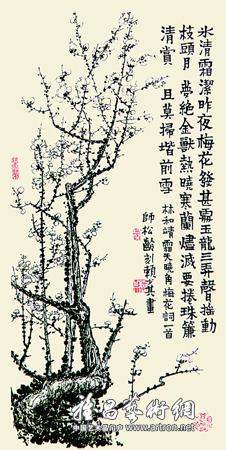 冰清霜潔昨夜梅花發甚霎玉龍三弄聲搖動
枝頭月夢絕金獸爇曉寒蘭燼滅要捲珠簾
清賞且莫掃堦前雪 林和靖霜天曉角梅花詞一首
師松齡刻賴少其畫
雅昌藝術網